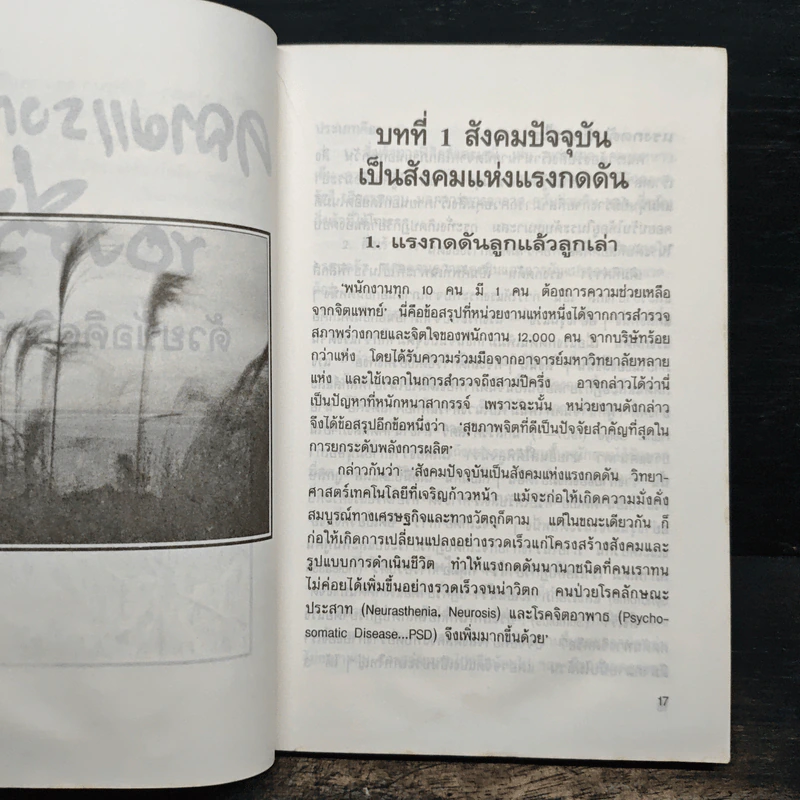 บทที่ 1 สังคมปัจจุบัน
เป็นสังคมแห่งแรงกดดัน
1. แรงกดดันลูกแล้วลูกเล่า
'พนักงานทุก 10 คน มี 1 คน ต้องการความช่วยเหลือ
จากจิตแพทย์' นี่คือข้อสรุปที่หน่วยงานแห่งหนึ่งได้จากการสำรวจ
สภาพร่างกายและจิตใจของพนักงาน 12,000 คน จากบริษัทร้อย
กว่าแห่ง โดยได้รับความร่วมมือจากอาจารย์มหาวิทยาลัยหลาย
แห่ง และใช้เวลาในการสำรวจถึงสามปีครึ่ง อาจกล่าวได้ว่านี่
เป็นปัญหาที่หนักหนาสากรรจ์ เพราะฉะนั้น หน่วยงานดังกล่าว
จึงได้ข้อสรุปอีกข้อหนึ่งว่า 'สุขภาพจิตที่ดีเป็นปัจจัยสำคัญที่สุดใน
การยกระดับพลังการผลิต'
กล่าวกันว่า 'สังคมปัจจุบันเป็นสังคมแห่งแรงกดดัน วิทยา-
ศาสตร์เทคโนโลยีที่เจริญก้าวหน้า แม้จะก่อให้เกิดความมั่งคั่ง
สมบูรณ์ทางเศรษฐกิจและทางวัตถุก็ตาม แต่ในขณะเดียวกัน ก็
ก่อให้เกิดการเปลี่ยนแปลงอย่างรวดเร็วแก่โครงสร้างสังคมและ
รูปแบบการดำเนินชีวิต ทำให้แรงกดดันนานาชนิดที่คนเราทน
ไม่ค่อยได้เพิ่มขึ้นอย่างรวดเร็วจนน่าวิตก คนป่วยโรคลักษณะ
ประสาท (Neurasthenia, Neurosis) และโรคจิตอาพาธ (Psycho-
somatic Disease...PSD) จึงเพิ่มมากขึ้นด้วย'
17